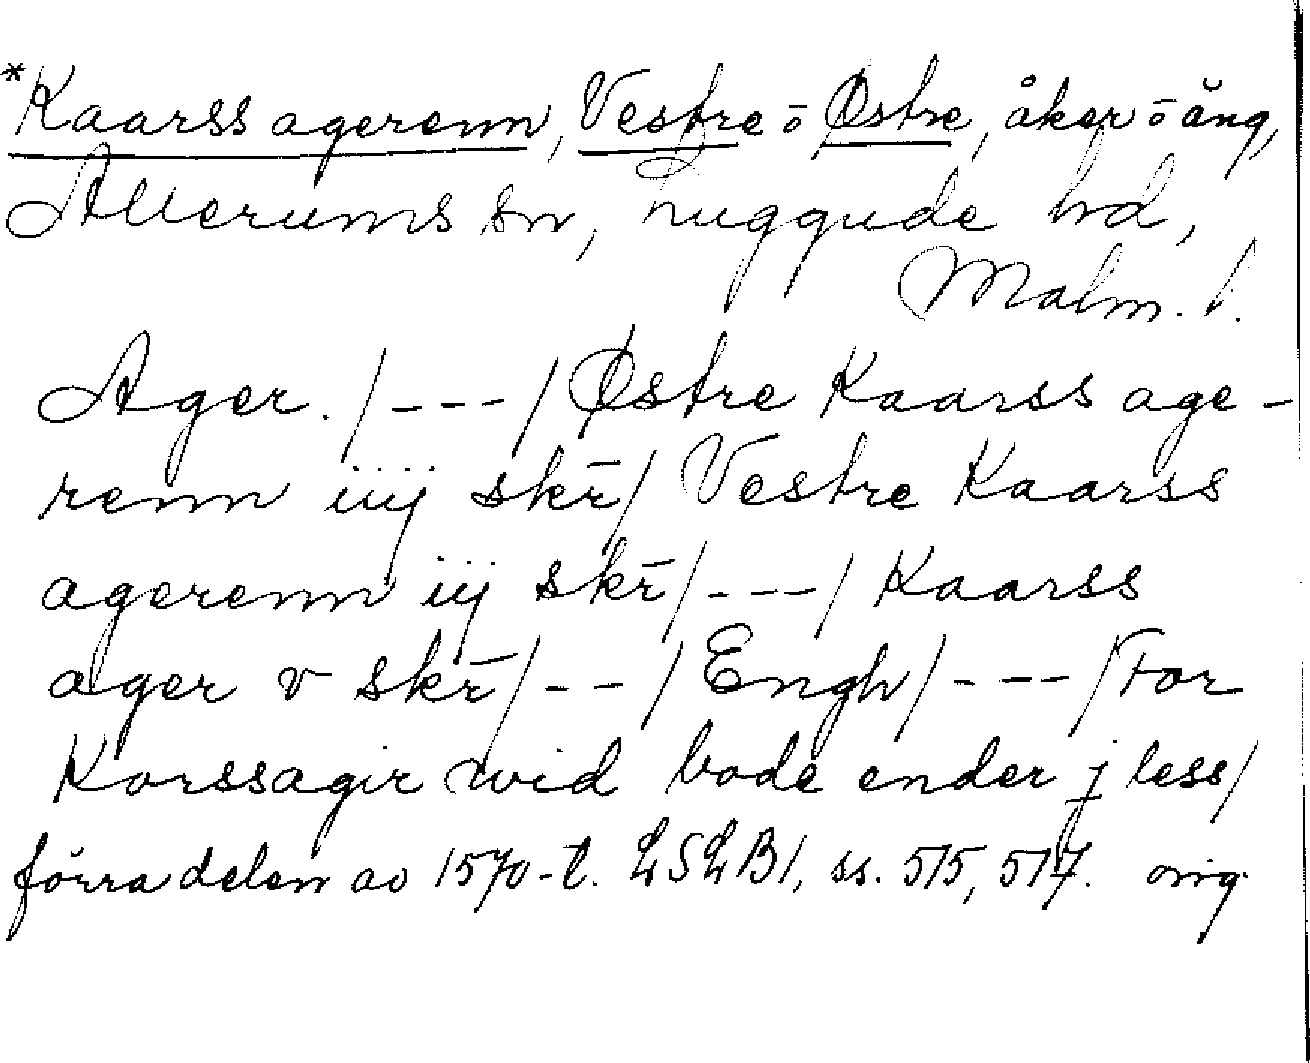 *Kaarss agerenn, Vestre ō Østre, åker ō äng,
Allerums sn, Luggude hd,
Malm. l.
Ager. /---/ Østre Kaarss age-
renn iiij skr̄/ Vestre Kaarss
agerenn iij skr̄/---/ Kaarss
ager v skr̄/--/ Engh/---/ For
Korssagir wid bode ender j less/
förra delen av 1570-t. LSLB1, ss. 515, 517. orig